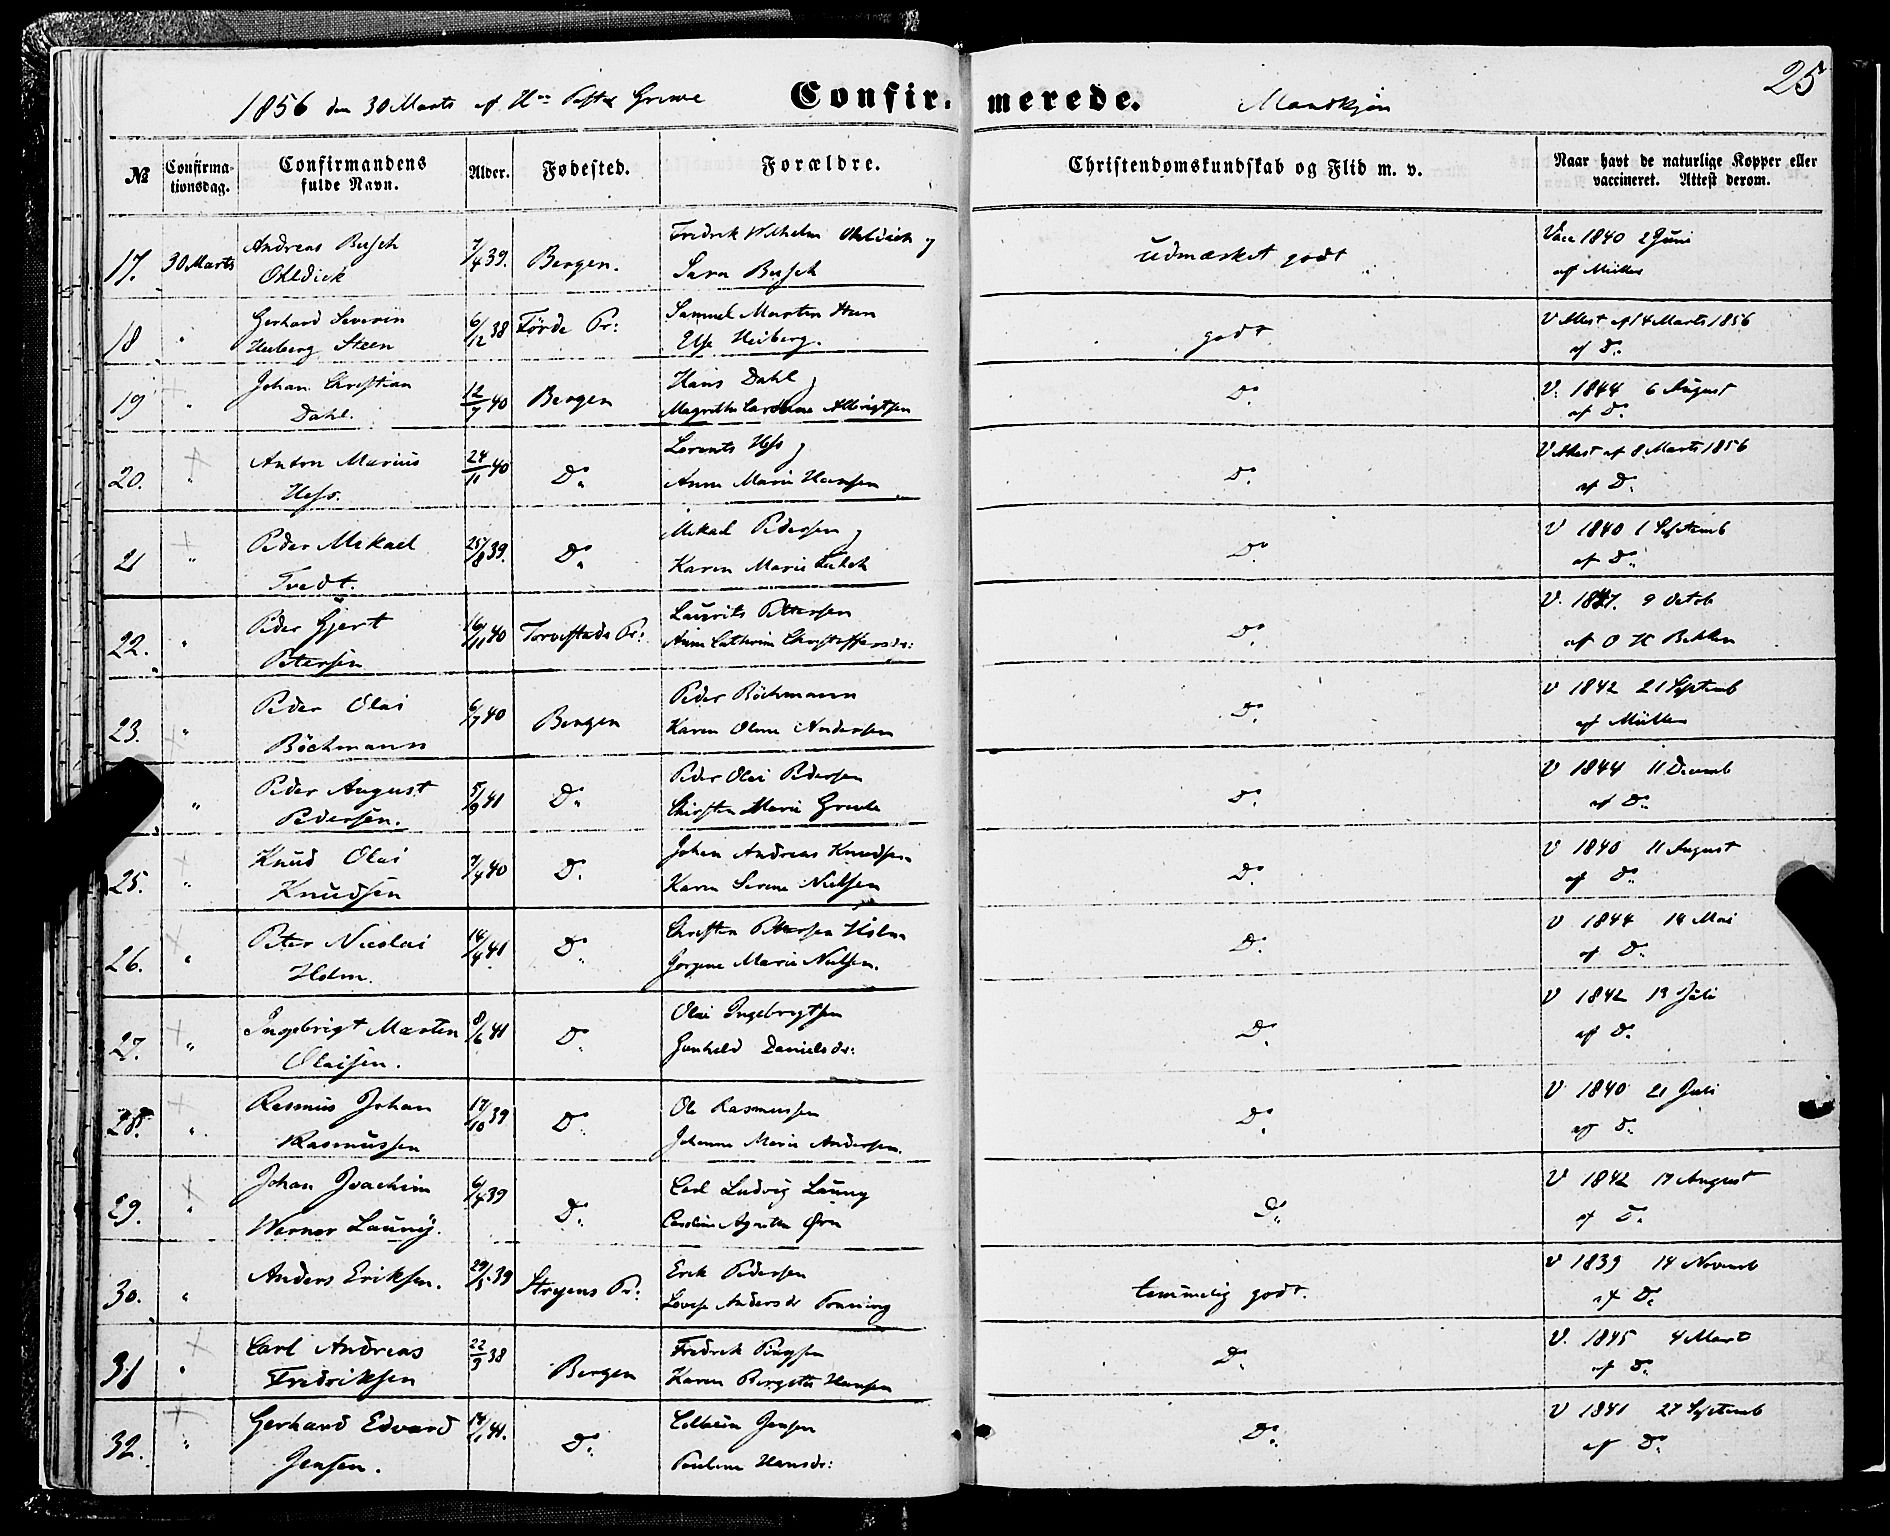 25
1856 den 30 Marts af Hr Grewe
Confirmerede.
Mandkjøn
№ Confirmationsdag. Confirmandens fulde Navn. Alder. Fødested. Forældre. Christendomskundskab og Flid m. v. Naar havt de naturlige Kopper eller vaccineret. Attest derom.
17. 30 Marts Andreas Busch 7/4 39. Bergen. Fredrik Wilhelm Ohldieck og udmærket godt Vacc 1840 2 Juni
Ohldieck Sara Busch af Müller
18 " Gerhard Severin 6/12 38 Förde Pr: Samuel Martin Steen godt. V Attest af 14 Marts 1856
Heiberg Steen Else Heiberg. af Do
19 " Johan Christian 12/7 40 Bergen Hans Dahl Do V. 1844 6 August
Dahl. Magrethe Albrigtsen af Do
20. " Anton Marius 24/11 40 Do Lorents Hess Do V Attest af 8 Marts 1856
Hess. Anne Marie Hansen af Do
21 " Peder Mikael 25/8 39. Do Mikael Pedersen Do V 1840 1 Septemb
Tvedt. Karen Marie af Do
22. " Peder Gjert 16/11 40 Torvestads Pr: Laurits Petersen Do V. 1847. 9 Octob
Petersen Anne Cathrine Christoffersdr: af O H Bekken
23. " Peder Olai 6/7 40 Bergen Peder Böckmann Do V 1842 21 Septemb
Böckmann Karen Oline Andersen af Müller
" Peder August 5/9 41 Do Peder Olai Pedersen Do V 1844 11 Decemb
Pedersen. Marie af Do
25. " Knud Olai 7/4 40 Do Johan Andreas Knudsen Do V 1840 11 August
Knudsen Karen Serene Nielsen af Do
26. " Peter Nicolai 14/4 41 Do Christen Pettersen Holm Do V 1844 14 Mai
Holm. Jorgene Marie Nielsen. af Do
27. " Ingebrigt Marten 8/6 41 Do Olai Ingebrigtsen Do V 1842 19 Juli
Olaisen. Gunhild Danielsdr: af Do
28. " Rasmus Johan 17/10 39 Do Ole Rasmussen Do V 1840 21 Juli
Rasmussen Johanne Marie Andersen. af Do
29. " Johan Joachim 6/4 39 Do Carl Ludvig Launy Do V 1842 17 August
Werner Launy. Caroline Agnethe Örn af Do
30. " Anders Eriksen. 29/5 39 Stryens Pr: Erik Pedersen temmelig godt. V 1839 14 Novemb
Andersdr af Do
31 " Carl Andreas 22/3 38 Bergen Fredrik Do V. 1845 4 Mart
Fredriksen Karen Hansen af Do
32. " Gerhard Edvard 14/1 41. Do Jensen Do V 1841 27 Septemb
Jensen. Pauline Hansdr: af Do